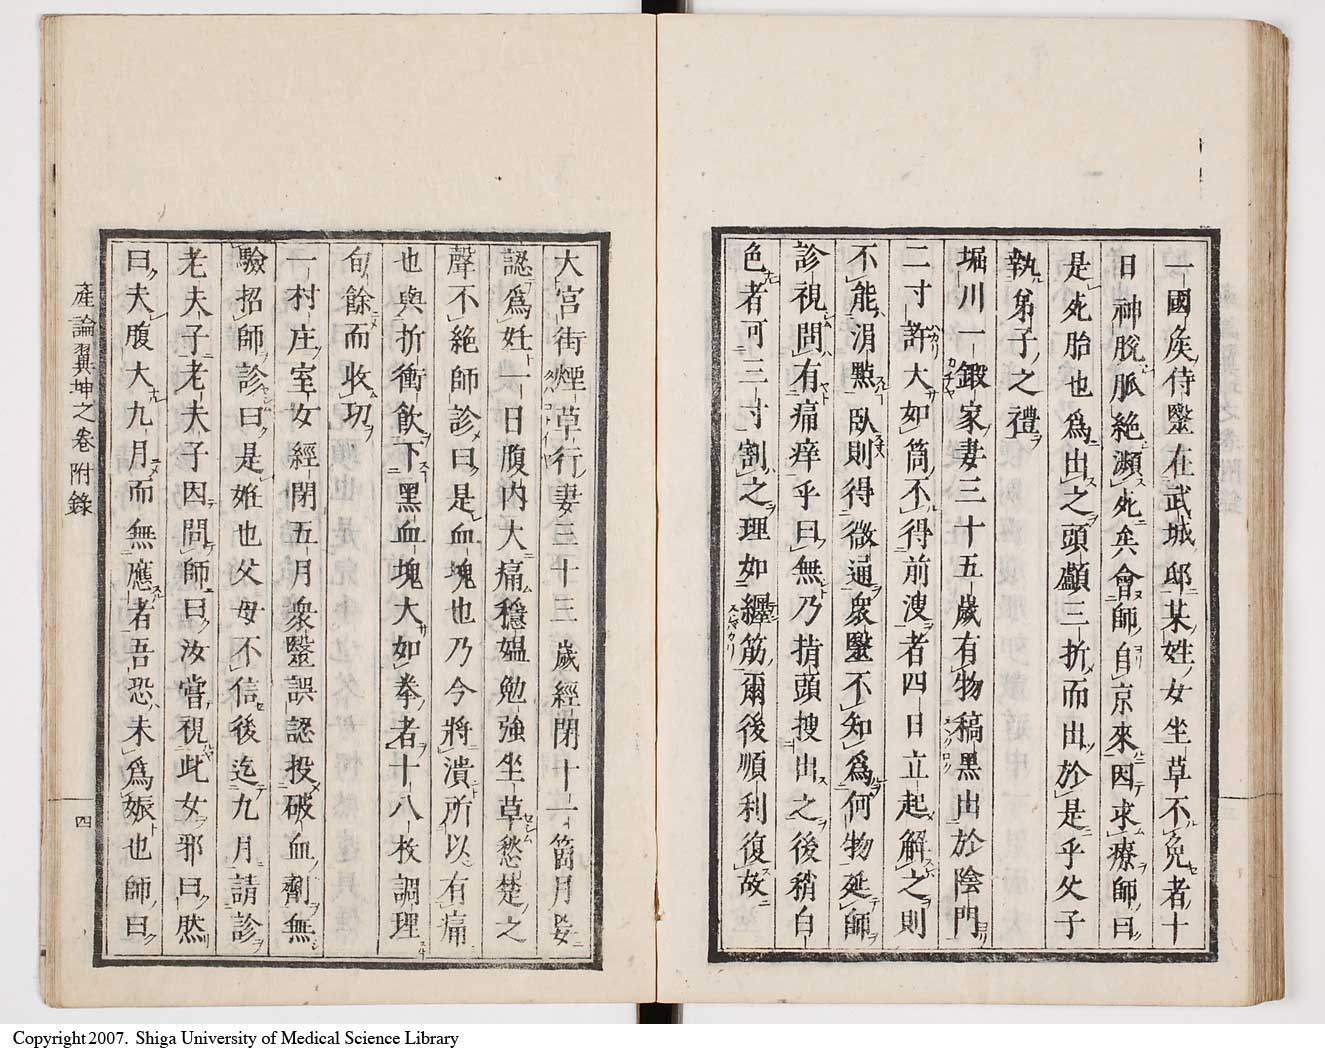 一國矦侍毉在武城邸某姓女坐草不免者十
日神脫脈絶瀕死矣會師自京來因求療師曰
是死胎也爲出之頭顱三折而出於是乎父子
執弟子之禮
堀川一鍛家妻三十五歲有物稿黑出於陰門
二寸許大如筒不得前溲者四日立起解之則
不能涓㸃臥則得微通衆毉不知爲何物延師
診視問有痛痒乎曰無乃揹頭搜出之後稍白
色者可三寸割之理如纏筋爾後順利復故
大宮街煙草行妻三十三歲經閉十一箇月以妄
認爲妊一日腹内大痛穩媼勉強坐草愁楚之
聲不絶師診曰是血塊也乃今將潰所以有痛
也與折衝飲下黑血塊大如拳者十八枚調理
旬餘而收功
一村庄室女經閉五月衆毉誤認投破血劑無
驗招師診曰是姙也父母不信後迄九月請診
老夫子老夫子因問師曰汝嘗視此女邪曰然
曰夫腹大九月而無應者吾恐未爲娠也師曰
產論翼坤之卷附錄
四
Copyright 2007. Shiga University of Medical Science Library